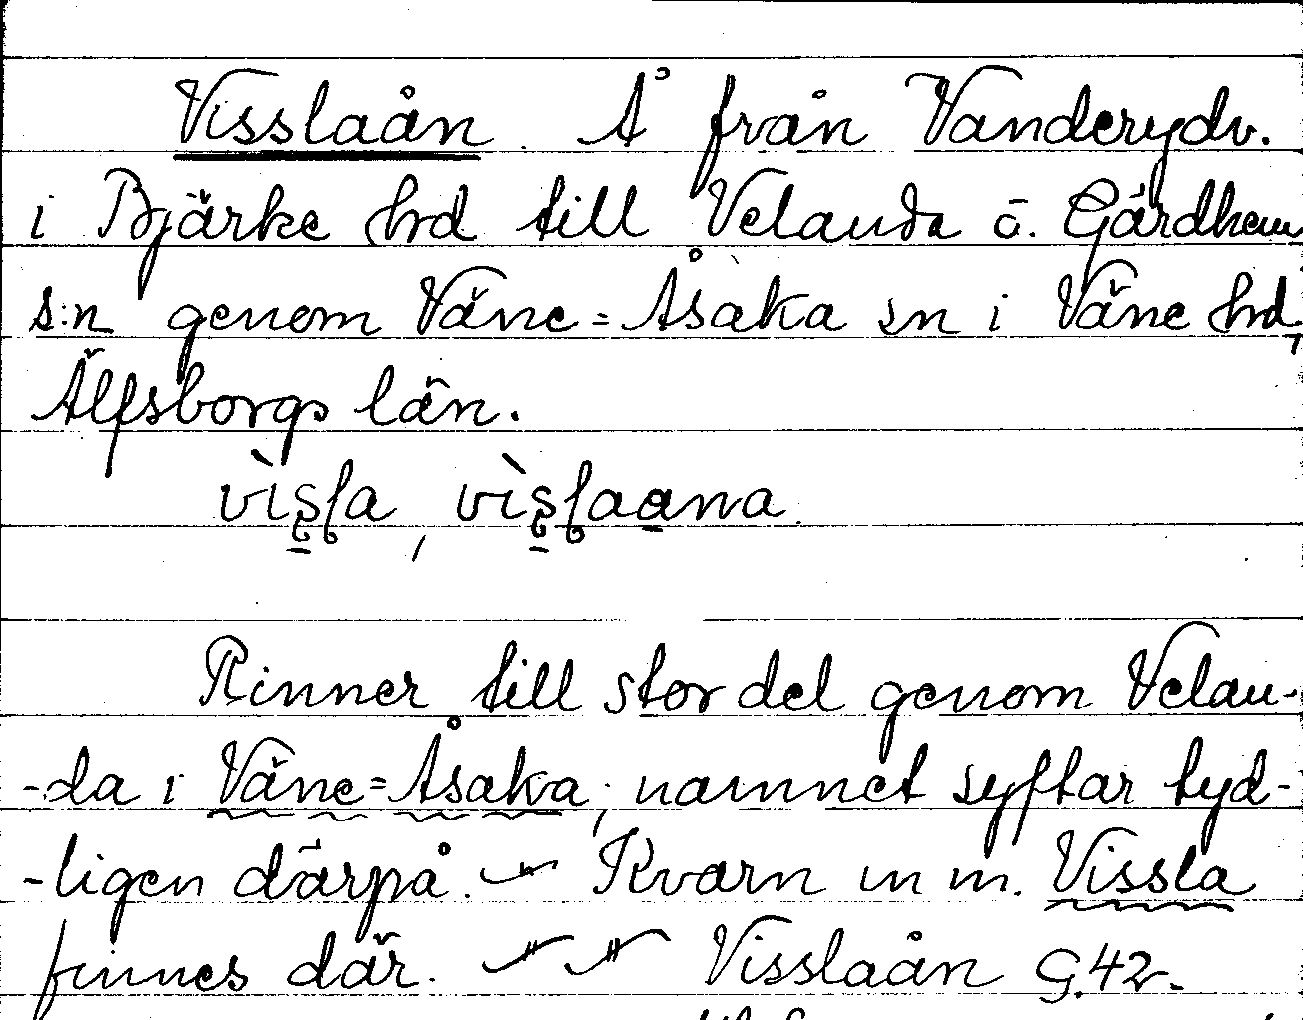 Visslaån. Å från Vanderydv.
i Bjärke hd till Velanda ö. Gärdhem
s:n genom Väne=Åsaka sn i Väne hd,
Älfsborgs län.
Rinner till stor del genom Velan-
-da i Väne=Åsaka; namnet syftar tyd-
-ligen därpå. — Kvarn m m. Vissla
finnes där. Visslaån G.42.